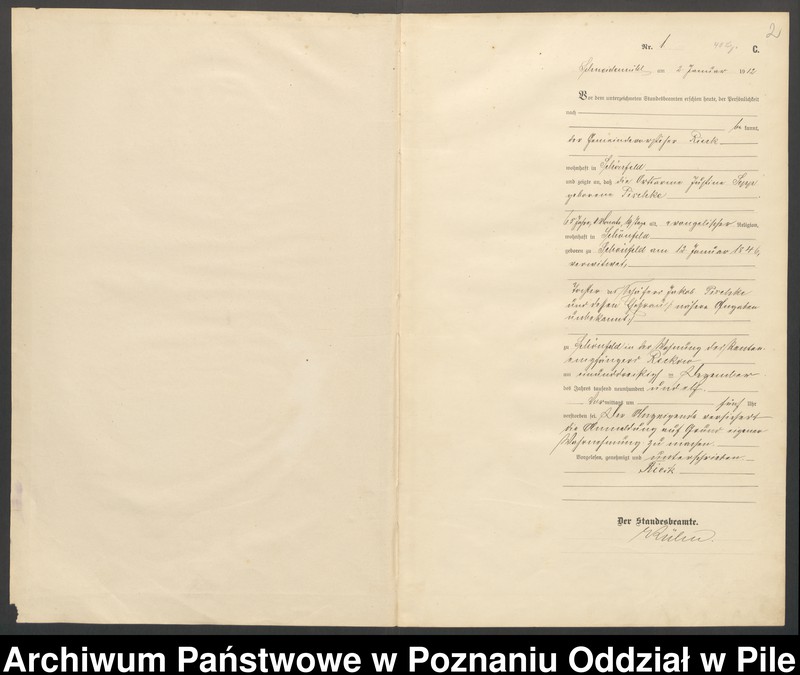 2
Nr. 1 C.
Schneidemühl am 2 Januar 1912
Vor dem unterzeichneten Standesbeamten erschien heute, der Persönlichkeit
nach
be kannt,
der Gemeindevorsteher Rieck
wohnhaft in Schönfeld
und zeigte an, daß die Ortsarme Justine
geborene
65 Jahre, Monate, Tage alt, evangelischer Religion,
wohnhaft in Schönfeld
geboren zu Schönfeld am 12 Januar 1846,
verwitwet,
Tochter des Schäfers Jakob
und dessen Ehefrau, nähere Angaben
unbekannt,
zu Schönfeld in der Wohnung des Renten-
empfängers Reckow
am einunddreißigsten Dezember
des Jahres tausend neunhundert und elf
Vor mittags um fünf Uhr
verstorben sei. Der Anzeigende versichert
die Anmeldung auf Grund eigener
Wahrnehmung zu machen.
Vorgelesen, genehmigt und unterschrieben
Rieck
Der Standesbeamte.
Archiwum Państwowe w Poznaniu Oddział w Pile